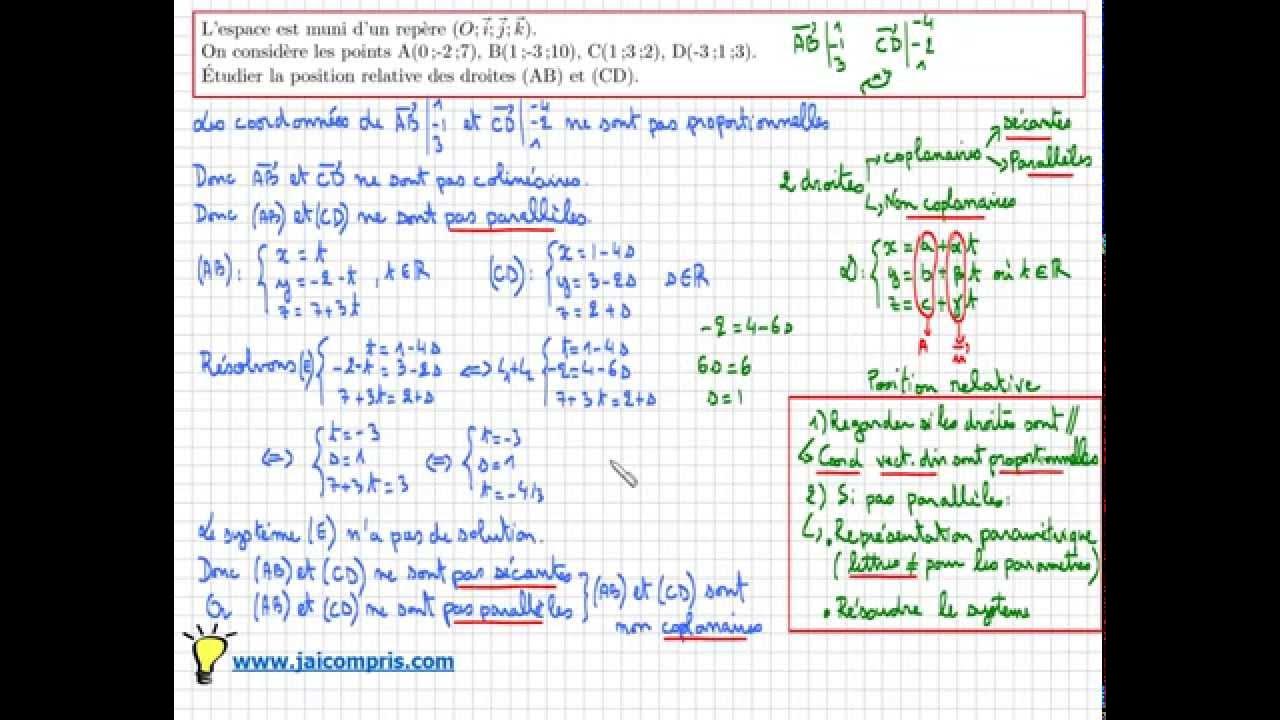 L'espace est muni d'un repère (O; i⃗; j⃗; k⃗).
On considère les points A(0;-2;7), B(1;-3;10), C(1;3;2), D(-3;1;3).
Étudier la position relative des droites (AB) et (CD).
AB⃗ | 1 -1 3 CD⃗ | -4 -2 1
Les coordonnées de AB⃗ | 1 -1 3 et CD⃗ | -4 -2 1 ne sont pas proportionnelles
Donc AB⃗ et CD⃗ ne sont pas colinéaires.
Donc (AB) et (CD) ne sont pas parallèles.
(AB): { x = t
y = -2 - t , t ∈ ℝ
z = 7 + 3t
(CD): { x = 1 - 4s
y = 3 - 2s s ∈ ℝ
z = 2 + s
Résolvons (E) { t = 1 - 4s
-2 - t = 3 - 2s
7 + 3t = 2 + s
⇔ L1+L2 { t = 1 - 4s
-2 = 4 - 6s
7 + 3t = 2 + s
-2 = 4 - 6s
6s = 6
s = 1
⇔ { t = -3
s = 1
7 + 3t = 3
⇔ { t = -3
s = 1
t = -4/3
Le système (E) n'a pas de solution.
Donc (AB) et (CD) ne sont pas sécantes
Or (AB) et (CD) ne sont pas parallèles
} (AB) et (CD) sont
non coplanaires
2 droites
coplanaires
sécantes
Parallèles
Non coplanaires
D: { x = a + αt
y = b + βt où t ∈ ℝ
z = c + γt
A u⃗
Position relative
1) Regarder si les droites sont //
Coord vect. dir sont proportionnelles
2) Si pas parallèles:
. Représentation paramétrique
(lettres ≠ pour les paramètres)
. Résoudre le système
www.jaicompris.com